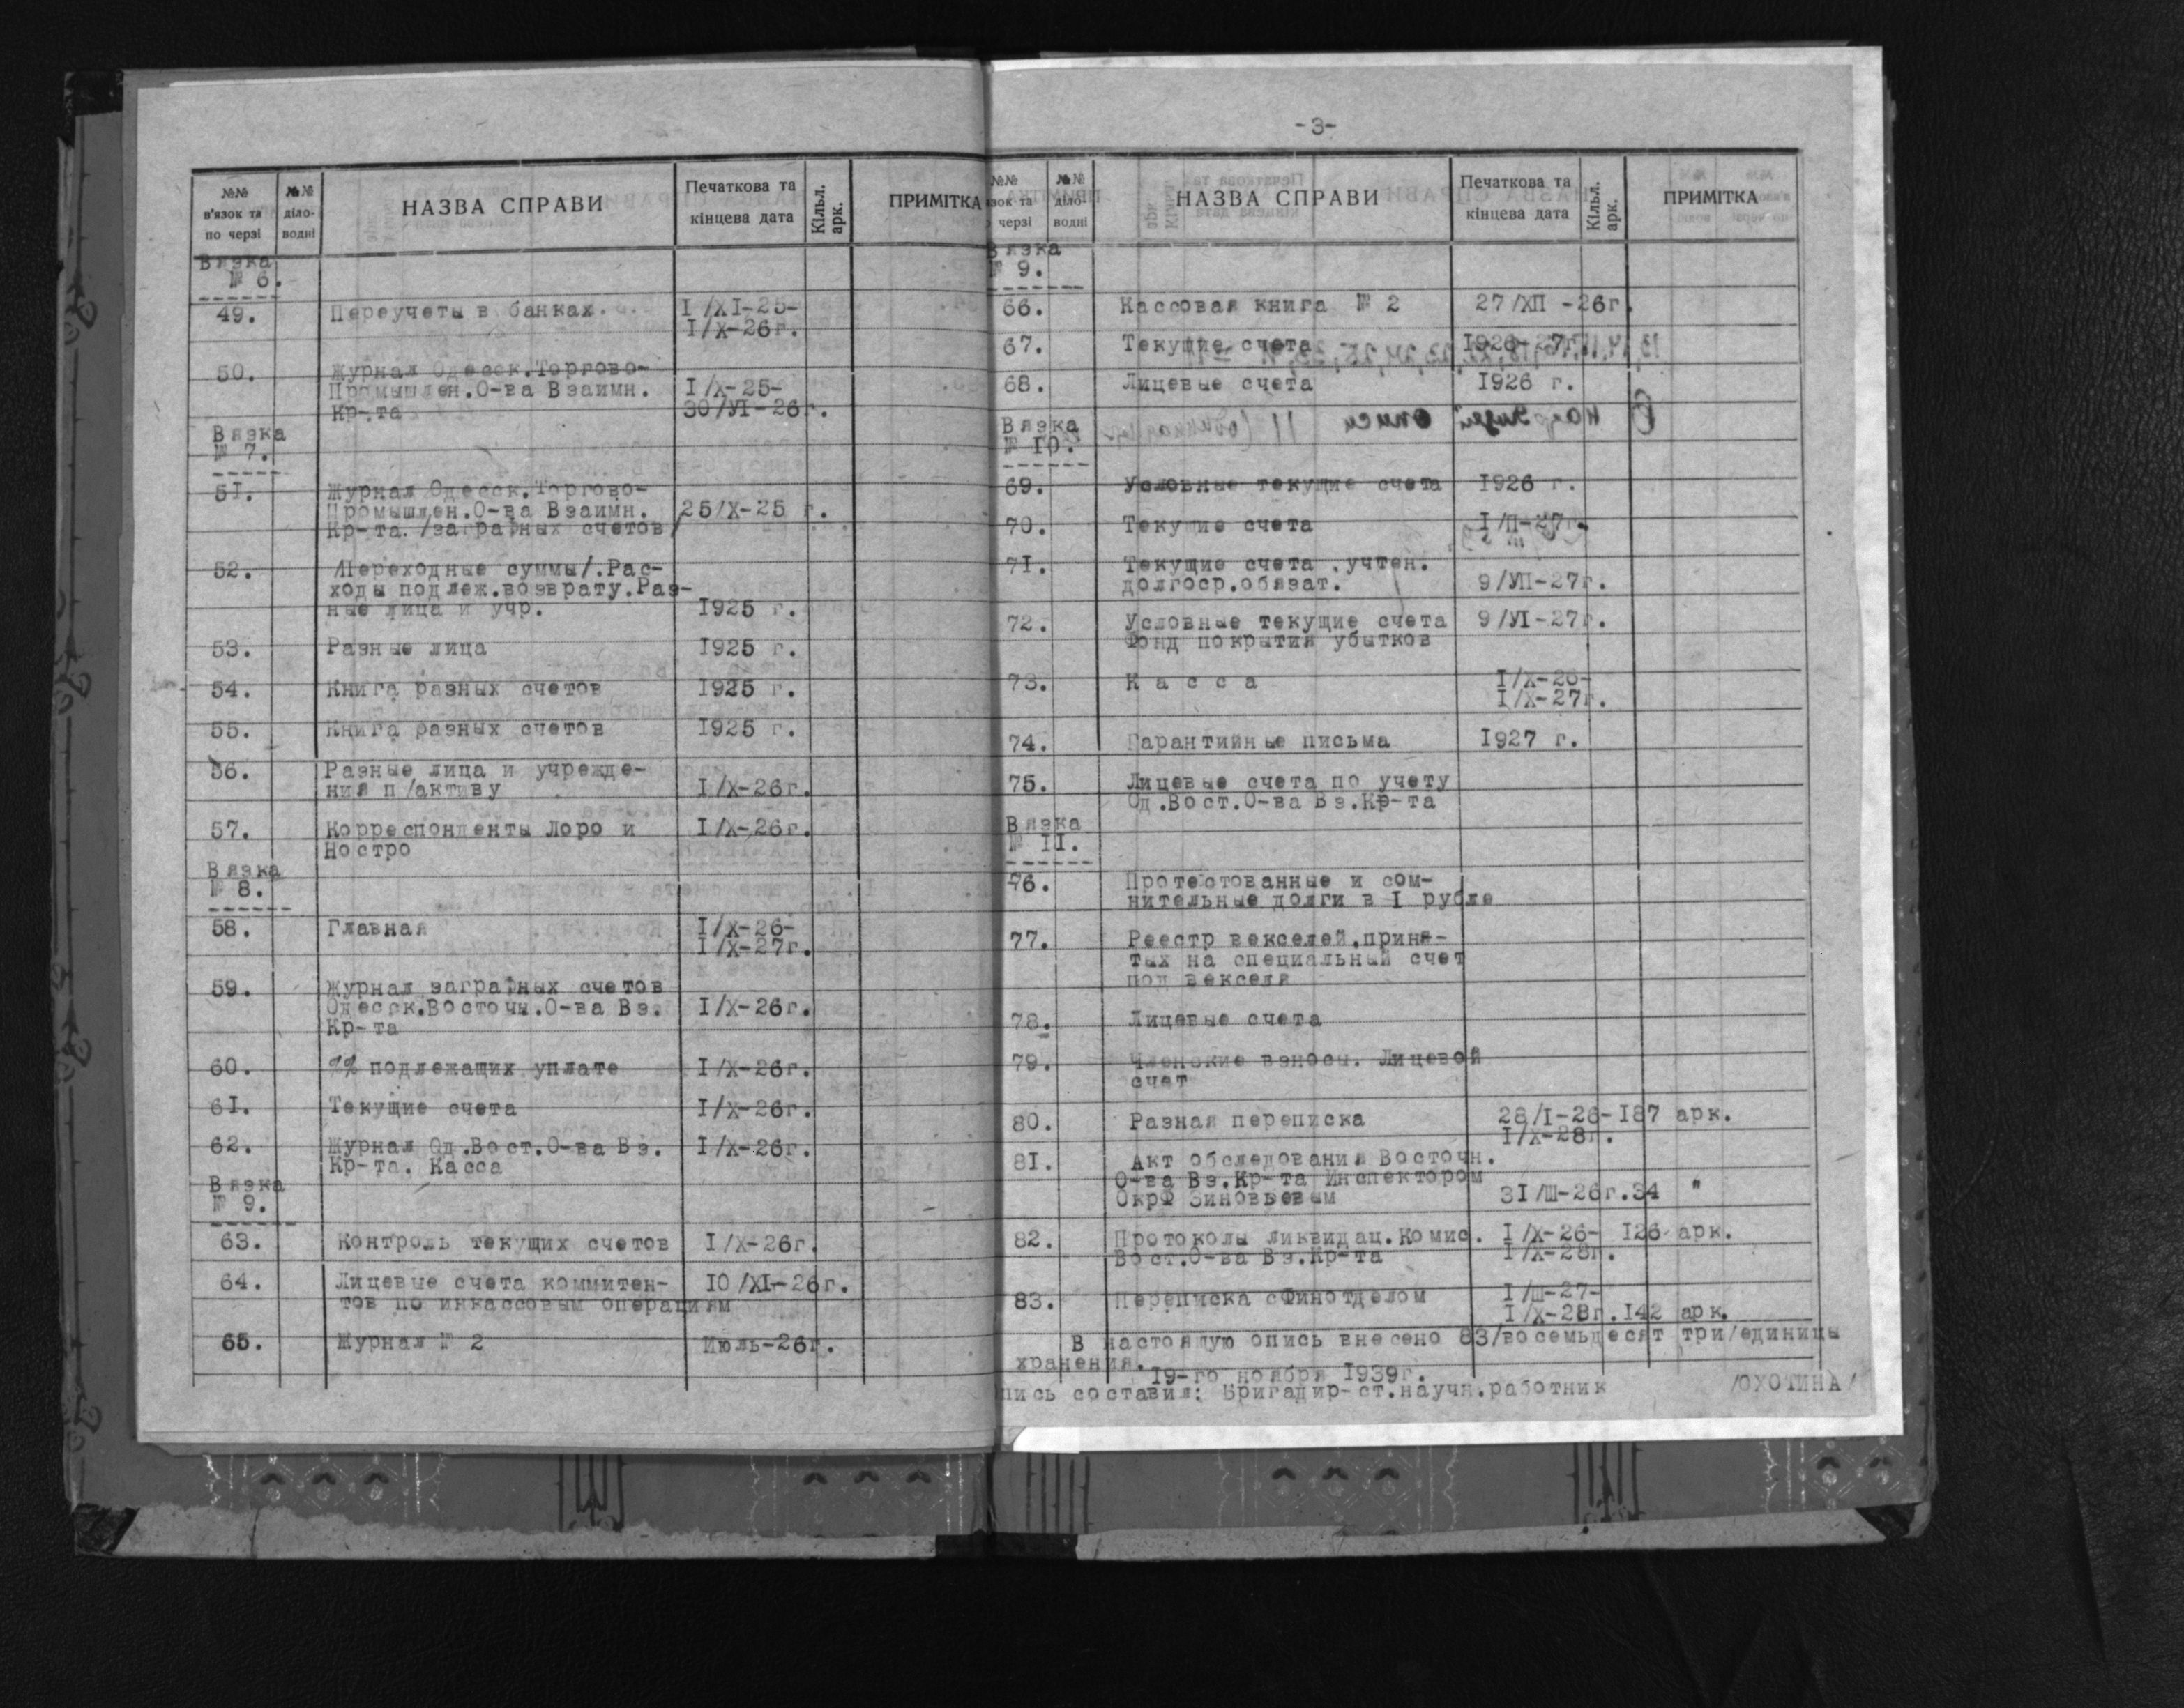 №№ в'язок та по черзі
№№ діло-водні
НАЗВА СПРАВИ
Печаткова та кінцева дата
Кільк. арк.
ПРИМІТКА
Вязка
№ 6.
49. Переучеты в банках. I/XI-25-
I/X-26г.
50. Журнал Одесск.Торгово-
Промышлен.О-ва Взаимн. I/X-25-
Кр-та 30/УI-26г.
Вязка
№ 7.
51. Журнал Одесск.Торгово-
Промышлен.О-ва Взаимн. 25/X-25 г.
Кр-та./заграфных счетов/
52. /Переходные суммы/.Рас-
ходы подлеж.возврату.Раз-
ные лица и учр. 1925 г.
53. Разные лица 1925 г.
54. Книга разных счетов 1925 г.
55. Книга разных счетов 1925 г.
56. Разные лица и учрежде-
ния п/активу I/X-26г.
57. Корреспонденты Лоро и I/X-26г.
Ностро
Вязка
№ 8.
58. Главная I/X-26-
I/X-27г.
59. Журнал заграфных счетов
Одесск.Восточн.О-ва Вз. I/X-26г.
Кр-та
60. %% подлежащих уплате I/X-26г.
61. Текущие счета I/X-26г.
62. Журнал Од.Вост.О-ва Вз. I/X-26г.
Кр-та. Касса
Вязка
№ 9.
63. Контроль текущих счетов I/X-26г.
64. Лицевые счета коммитен- 10/XI-26г.
тов по инкассовым операциям
65. Журнал № 2 Июль-26г.
-3-
№№ язок та по черзі
№№ діло-водні
НАЗВА СПРАВИ
Печаткова та кінцева дата
Кільк. арк.
ПРИМІТКА
Вязка
№ 9.
66. Кассовая книга № 2 27/ХП -26г.
67. Текущие счета 1926-27г.
68. Лицевые счета 1926 г.
Вязка
№ 10.
69. Условные текущие счета 1926 г.
70. Текущие счета I/П-27г.
71. Текущие счета .учтен.
долгоср.обязат. 9/УП-27г.
72. Условные текущие счета 9/УI-27г.
Фонд покрытия убытков
73. К а с с а I/X-26-
I/X-27г.
74. Гарантийные письма 1927 г.
75. Лицевые счета по учету
Од.Вост.О-ва Вз.Кр-та
Вязка
№ 11.
76. Протестованные и сом-
нительные долги в I рубле
77. Реестр векселей,приня-
тых на специальный счет
под векселя
78. Лицевые счета
79. Членские взносы. Лицевой
счет
80. Разная переписка 28/I-26-187 арк.
I/X-28г.
81. Акт обследования Восточн.
О-ва Вз.Кр-та Инспектором
ОкрФ Зиновьевым 31/Ш-26г.34 "
82. Протоколы ликвидац.Комис. I/X-26- 126 арк.
Вост.О-ва Вз.Кр-та I/X-28г.
83. Переписка сФинотделом I/Ш-27-
I/X-28г.142 арк.
В настоящую опись внесено 83/восемьдесят три/единицы
хранения.
19-го ноября 1939г.
пись составил: Бригадир-ст.научн.работник /ОХОТИНА/